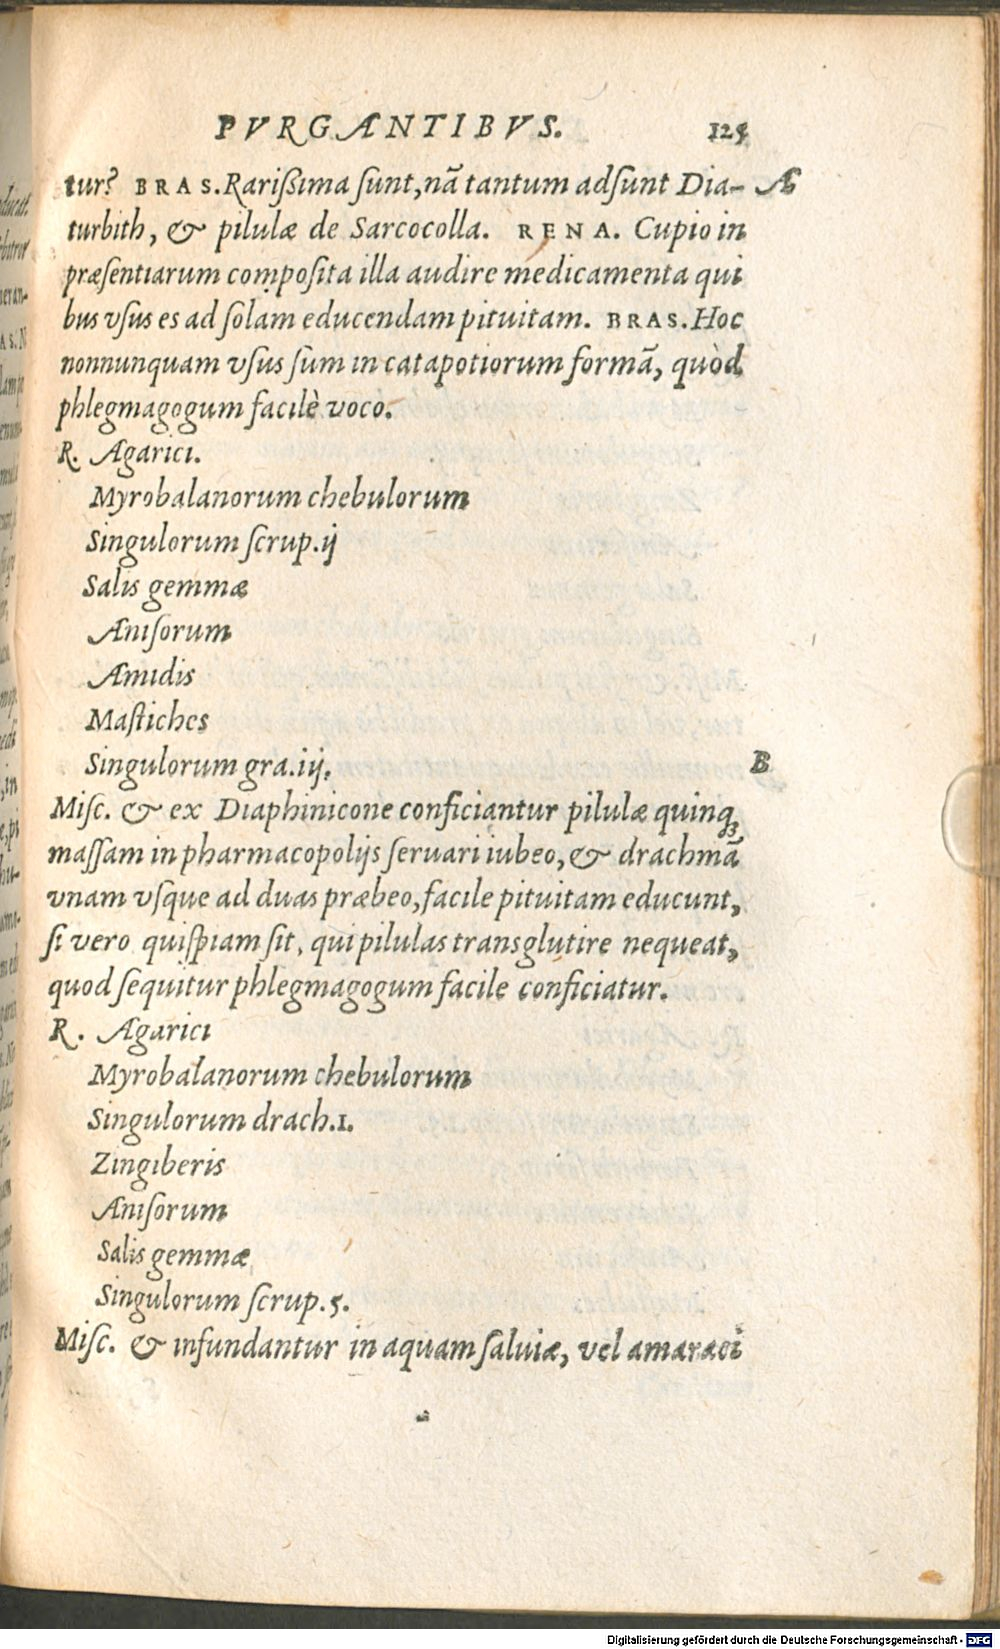 PVRGANTIBVS. 125
tur? BRAS. Rarißima ſunt, nã tantum adſunt Dia- A
turbith, & pilulæ de Sarcocolla. RENA. Cupio in
præſentiarum compoſita illa audire medicamenta qui
bus vſus es ad ſolam educendam pituitam. BRAS. Hoc
nonnunquam vſus ſum in catapotiorum formã, quòd
phlegmagogum facilè voco.
R. Agarici.
Myrobalanorum chebulorum
Singulorum ſcrup. ij
Salis gemmæ
Aniſorum
Amidis
Maſtiches
Singulorum gra. iij. B
Miſc. & ex Diaphinicone conficiantur pilulæ quinq;
maſſam in pharmacopolijs ſeruari iubeo, & drachmã
vnam vſque ad duas præbeo, facile pituitam educunt,
ſi vero quiſpiam ſit, qui pilulas transglutire nequeat,
quod ſequitur phlegmagogum facile conficiatur.
R. Agarici
Myrobalanorum chebulorum
Singulorum drach. 1.
Zingiberis
Aniſorum
Salis gemmæ
Singulorum ſcrup. 5.
Miſc. & infundantur in aquam ſaluiæ, vel amaraci
Digitalisierung gefördert durch die Deutsche Forschungsgemeinschaft - DFG